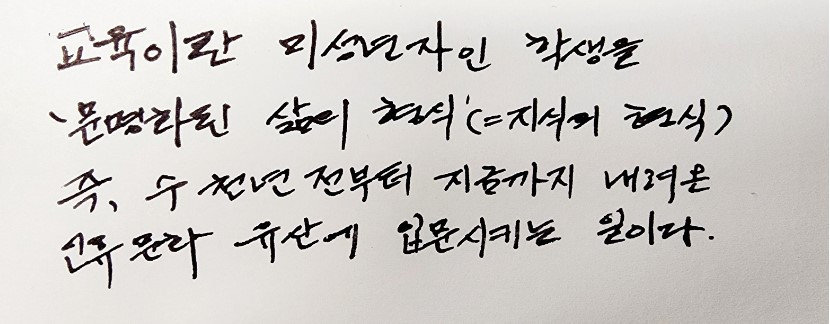 교육이란 미성년자인 학생을
'문명화된 삶의 형식'(=지식의 형식)
즉, 수천년 전부터 지금까지 내려온
인류 문화 유산에 입문시키는 일이다.